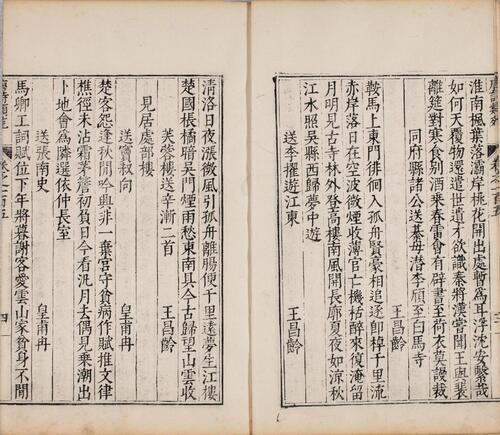 淮南楓葉落灞岸桃花開出處暫為耳浮沈安繫哉
如何天覆物還遣世遺才欲識秦將漢嘗聞王與裴
離筵對寒食别酒乗春雷會有辟書至荷衣莫謾裁
同府縣諸公送綦毋潛李頎至白馬寺
王昌齡
鞍馬上東門徘徊入孤舟賢豪相追逐即棹千里流
赤岸落日在空波微煙收薄宦忘機括醉來復淹留
月明見古寺林外登高樓南風開長廊夏夜如涼秋
江水照吳縣西歸夢中遊
送李擢遊江東
王昌齡
清洛日夜漲微風引孤舟離腸便千里遠夢生江樓
楚國橙橘暗吳門煙雨愁東南具今古歸望山雲收
芙蓉樓送辛漸二首
王昌齡
見居處部樓
送竇叔向
皇甫冉
楚客怨逢秋閒吟興非一棄官守貧病作賦推文律
樵徑未沾霜茅簷初負日今看洗月去偶見乗潮出
卜地會為隣選依仲長室
送張南史
皇甫冉
馬卿工詞賦位下年將暮謝客愛雲山家貧身不閒
四